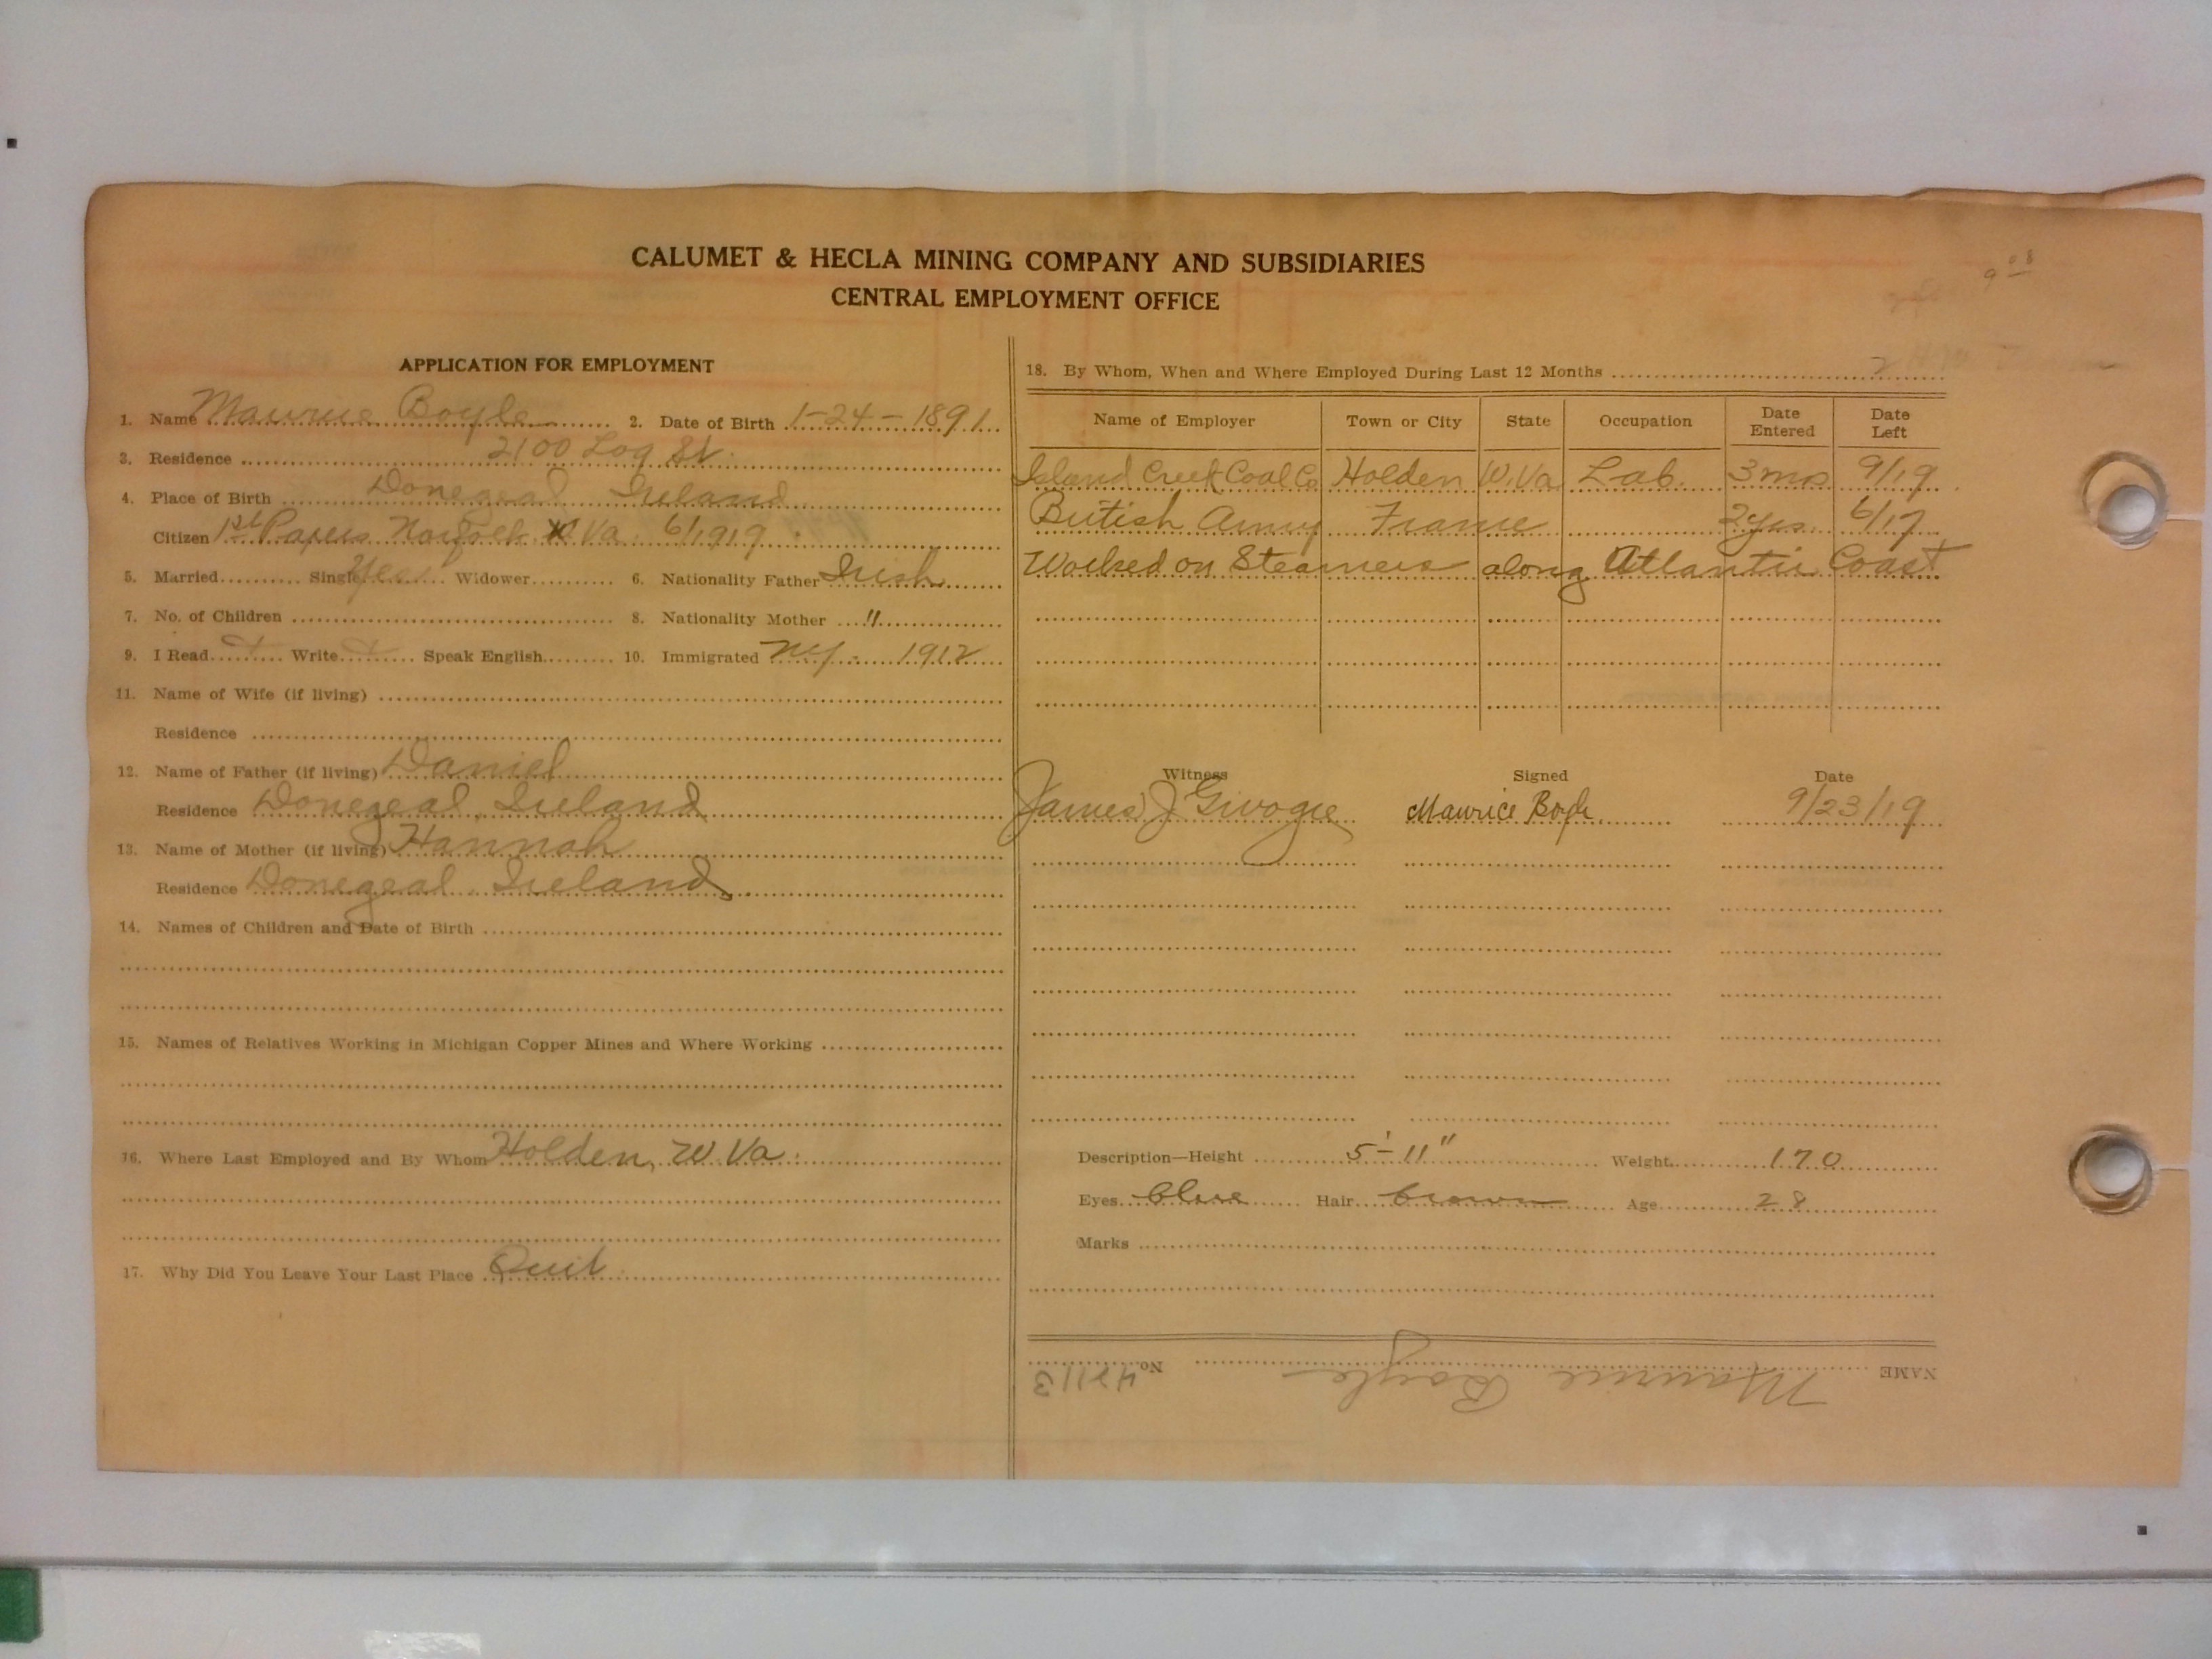 CALUMET & HECLA MINING COMPANY AND SUBSIDIARIES
CENTRAL EMPLOYMENT OFFICE
9 08
APPLICATION FOR EMPLOYMENT
1. Name Maurice Boyle 2. Date of Birth 1-24-1891
3. Residence 2100 Log St.
4. Place of Birth Donegeal Ireland
Citizen 1st Papers Norfolk Va. 6/1919
5. Married Single Yes Widower 6. Nationality Father Irish
7. No. of Children 8. Nationality Mother "
9. I Read + Write + Speak English 10. Immigrated NY - 1912
11. Name of Wife (if living)
Residence
12. Name of Father (if living) Daniel
Residence Donegeal, Ireland
13. Name of Mother (if living) Hannah
Residence Donegeal, Ireland
14. Names of Children and Date of Birth
15. Names of Relatives Working in Michigan Copper Mines and Where Working
16. Where Last Employed and By Whom Holden, W. Va.
17. Why Did You Leave Your Last Place Quit
18. By Whom, When and Where Employed During Last 12 Months 2
Name of Employer Town or City State Occupation Date Entered Date Left
Island Creek Coal Co Holden W.Va. Lab. 3 mos 9/19
British Army France 2 yrs. 6/17
Worked on Steamers along Atlantic Coast
Witness Signed Date
James J Maurice Boyle 9/23/19
Description—Height 5'-11" Weight 170
Eyes blue Hair brown Age 28
Marks
NAME Maurice Boyle No. 42113